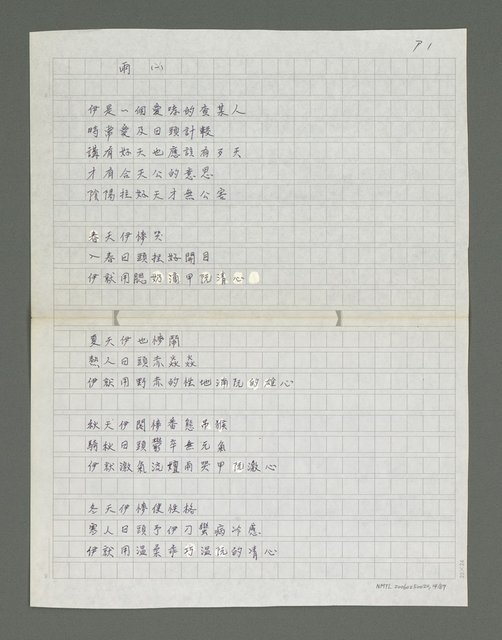 P1
雨 (六)
伊是一個愛唸的查某人
時常愛及日頭計較
講有好天也應該有歹天
才有合天公的意思
陰陽拄好天才無公害
春天伊捧笑
入春日頭拄好開目
伊就用 奶滴甲阮清心
夏天伊也捧鬧
熱人日頭赤焱焱
伊就用野赤的性地滴阮的雄心
秋天伊閣捧番態吊猴
騎秋日頭鬱卒無元氣
伊就激氣流 雨哭甲阮激心
冬天伊捧僫性格
寒人日頭予伊刁蠻病冷感
伊就用溫柔乖巧溫阮的凊心
NMTL20060250020,14/89